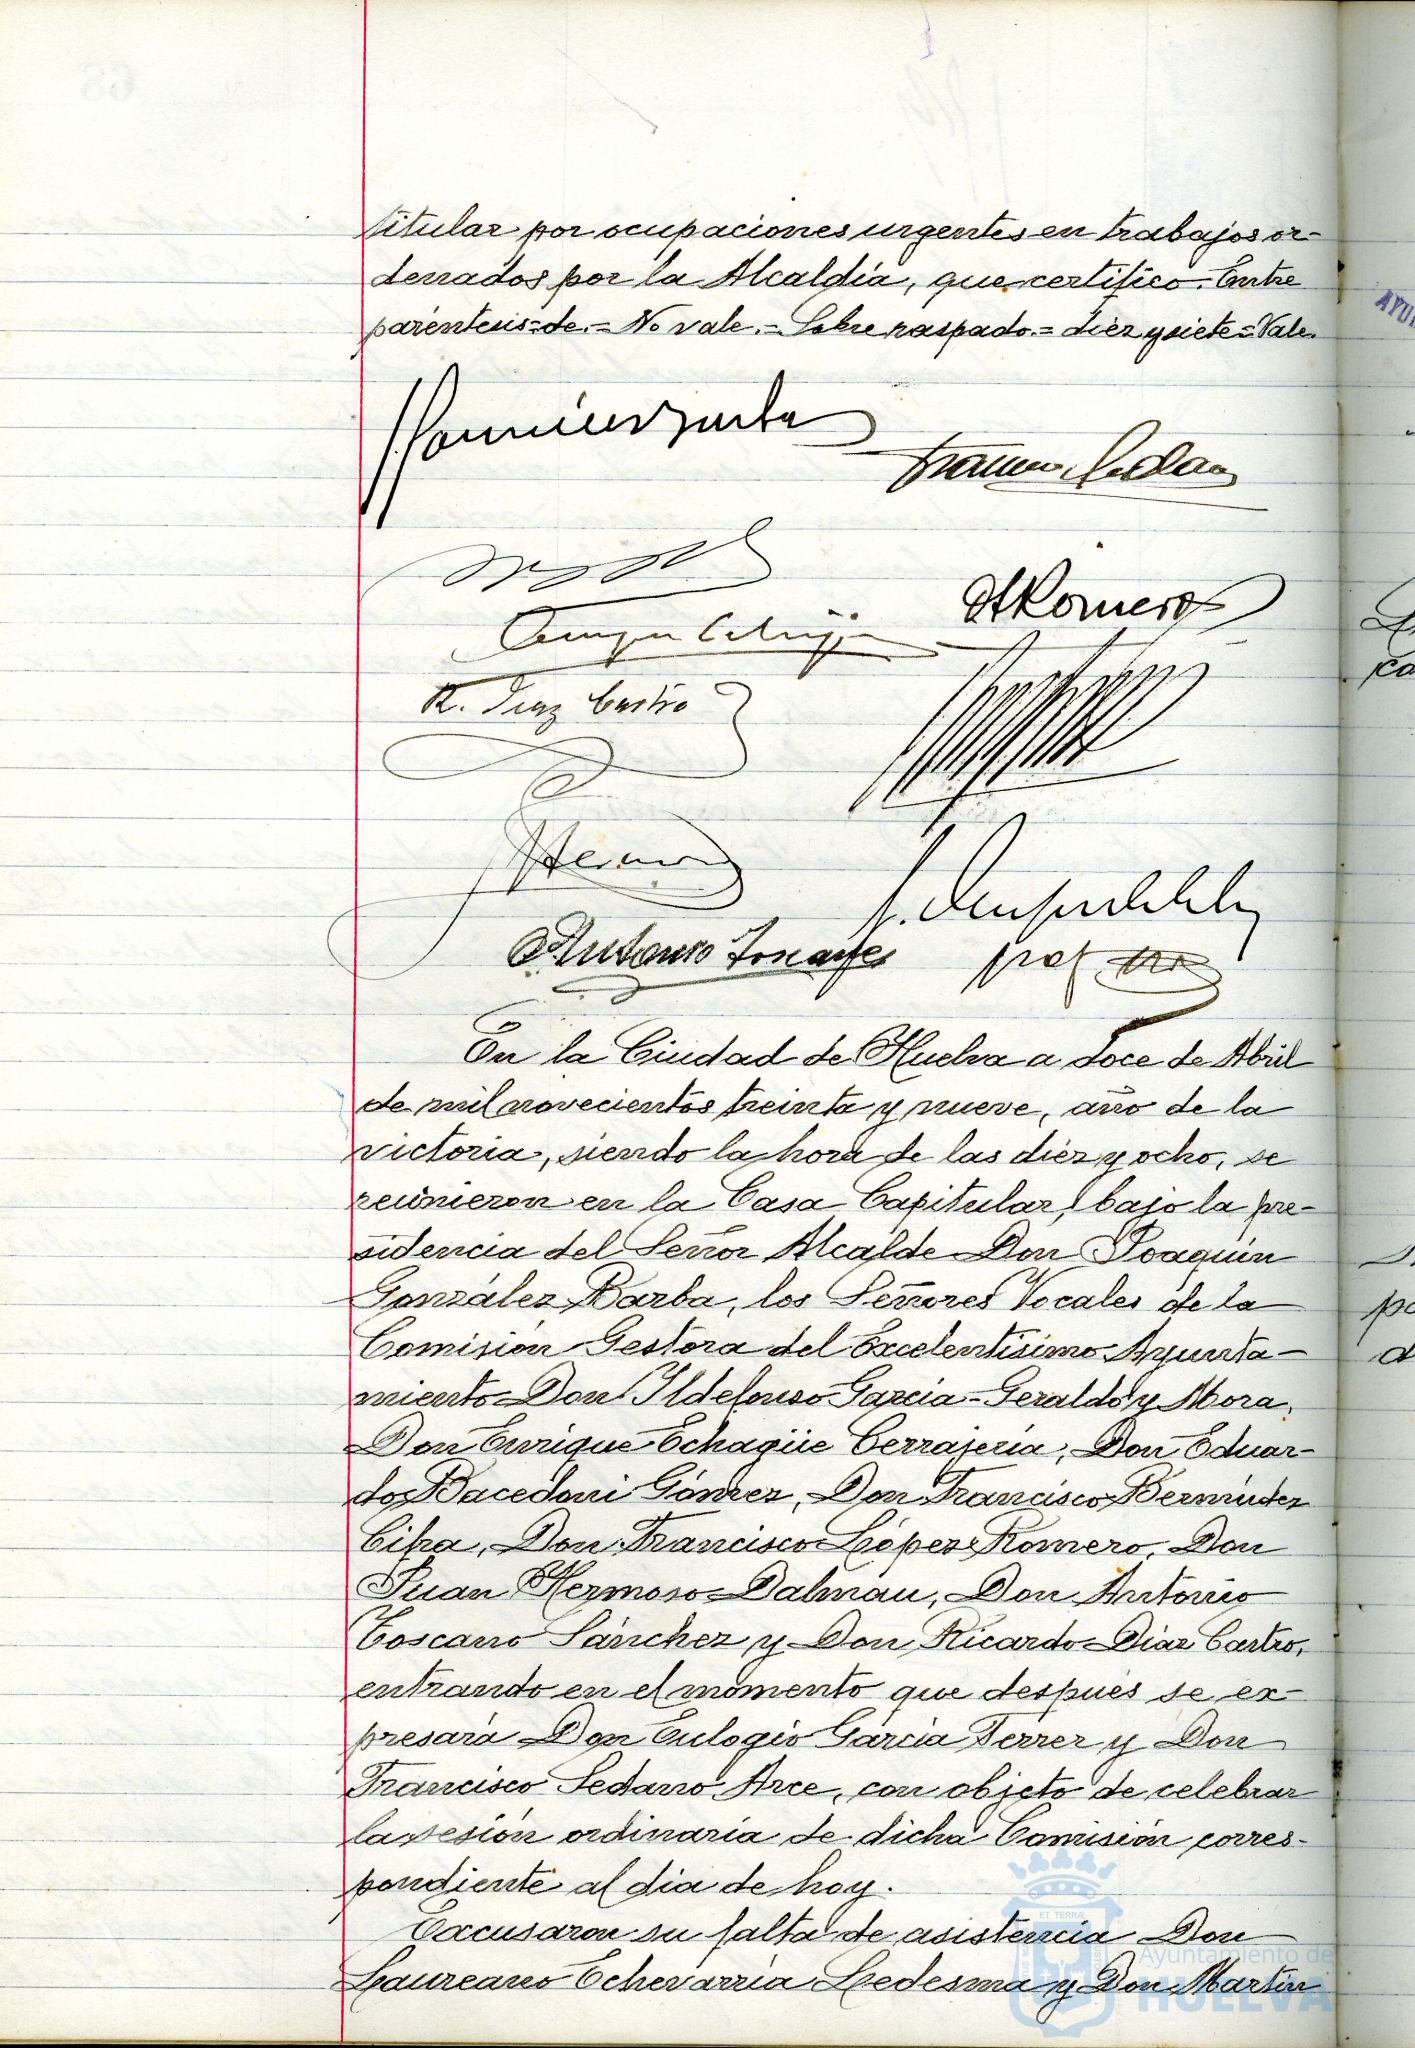 titular por ocupaciones urgentes en trabajos or-
denados por la Alcaldía, que certifico. Entre
paréntesis=de.=No vale.=Sobre raspado.=diez y siete=Vale.
A Romero
R. Diaz Castro
Antonio Toscano
En la Ciudad de Huelva a doce de Abril
de mil novecientos treinta y nueve, año de la
victoria, siendo la hora de las diez y ocho, se
reunieron en la Casa Capitular, bajo la pre-
sidencia del Señor Alcalde Don Joaquín
González Barba, los Señores Vocales de la
Comisión Gestora del Excelentísimo Ayunta-
miento Don Ildefonso García-Geraldo y Mora,
Don Enrique Echagüe Cerrajería, Don Eduar-
do Bacedoni Gómez, Don Francisco Bermúdez
Cifra, Don Francisco López Romero, Don
Juan Hermoso Dalmau, Don Antonio
Toscano Sánchez y Don Ricardo Díaz Castro,
entrando en el momento que después se ex-
presará Don Eulogio García Ferrer y Don
Francisco Sedano Arce, con objeto de celebrar
la sesión ordinaria de dicha Comisión corres-
pondiente al día de hoy.
Excusaron su falta de asistencia Don
Laureano Echevarría Ledesma y Don Martín
Ayuntamiento de
HUELVA